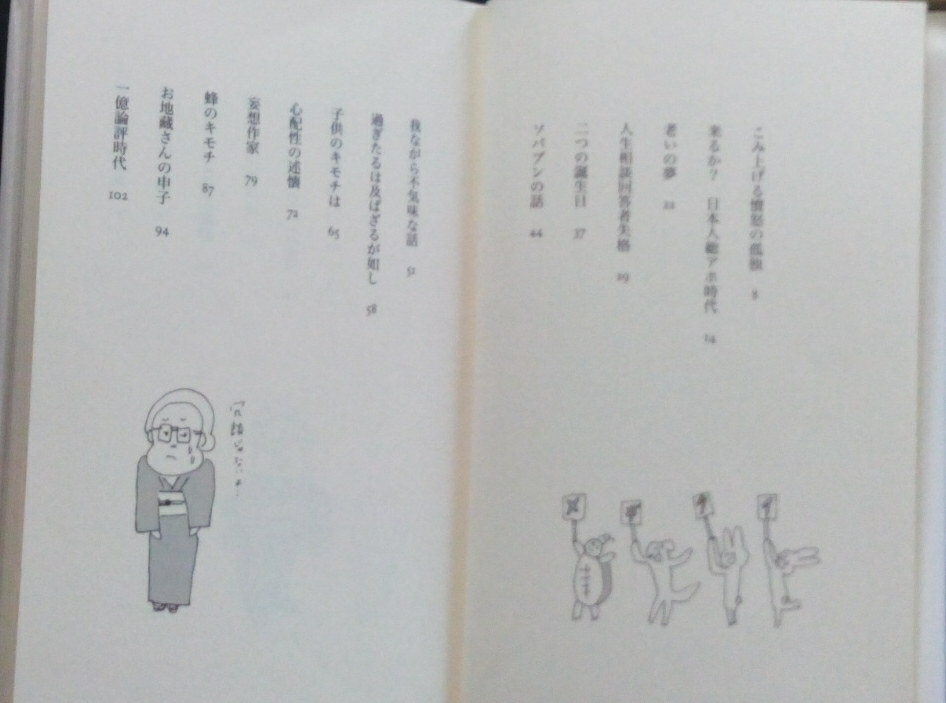 こみ上げる憤怒の孤独 8
来るか? 日本人総アホ時代 14
老いの夢 22
人生相談回答者失格 29
二つの誕生日 37
ソバプンの話 44
我ながら不気味な話 51
過ぎたるは及ばざるが如し 58
子供のキモチは 65
心配性の述懐 72
妄想作家 79
蜂のキモチ 87
お地蔵さんの申子 94
一億論評時代 102
冗談じゃないよ…